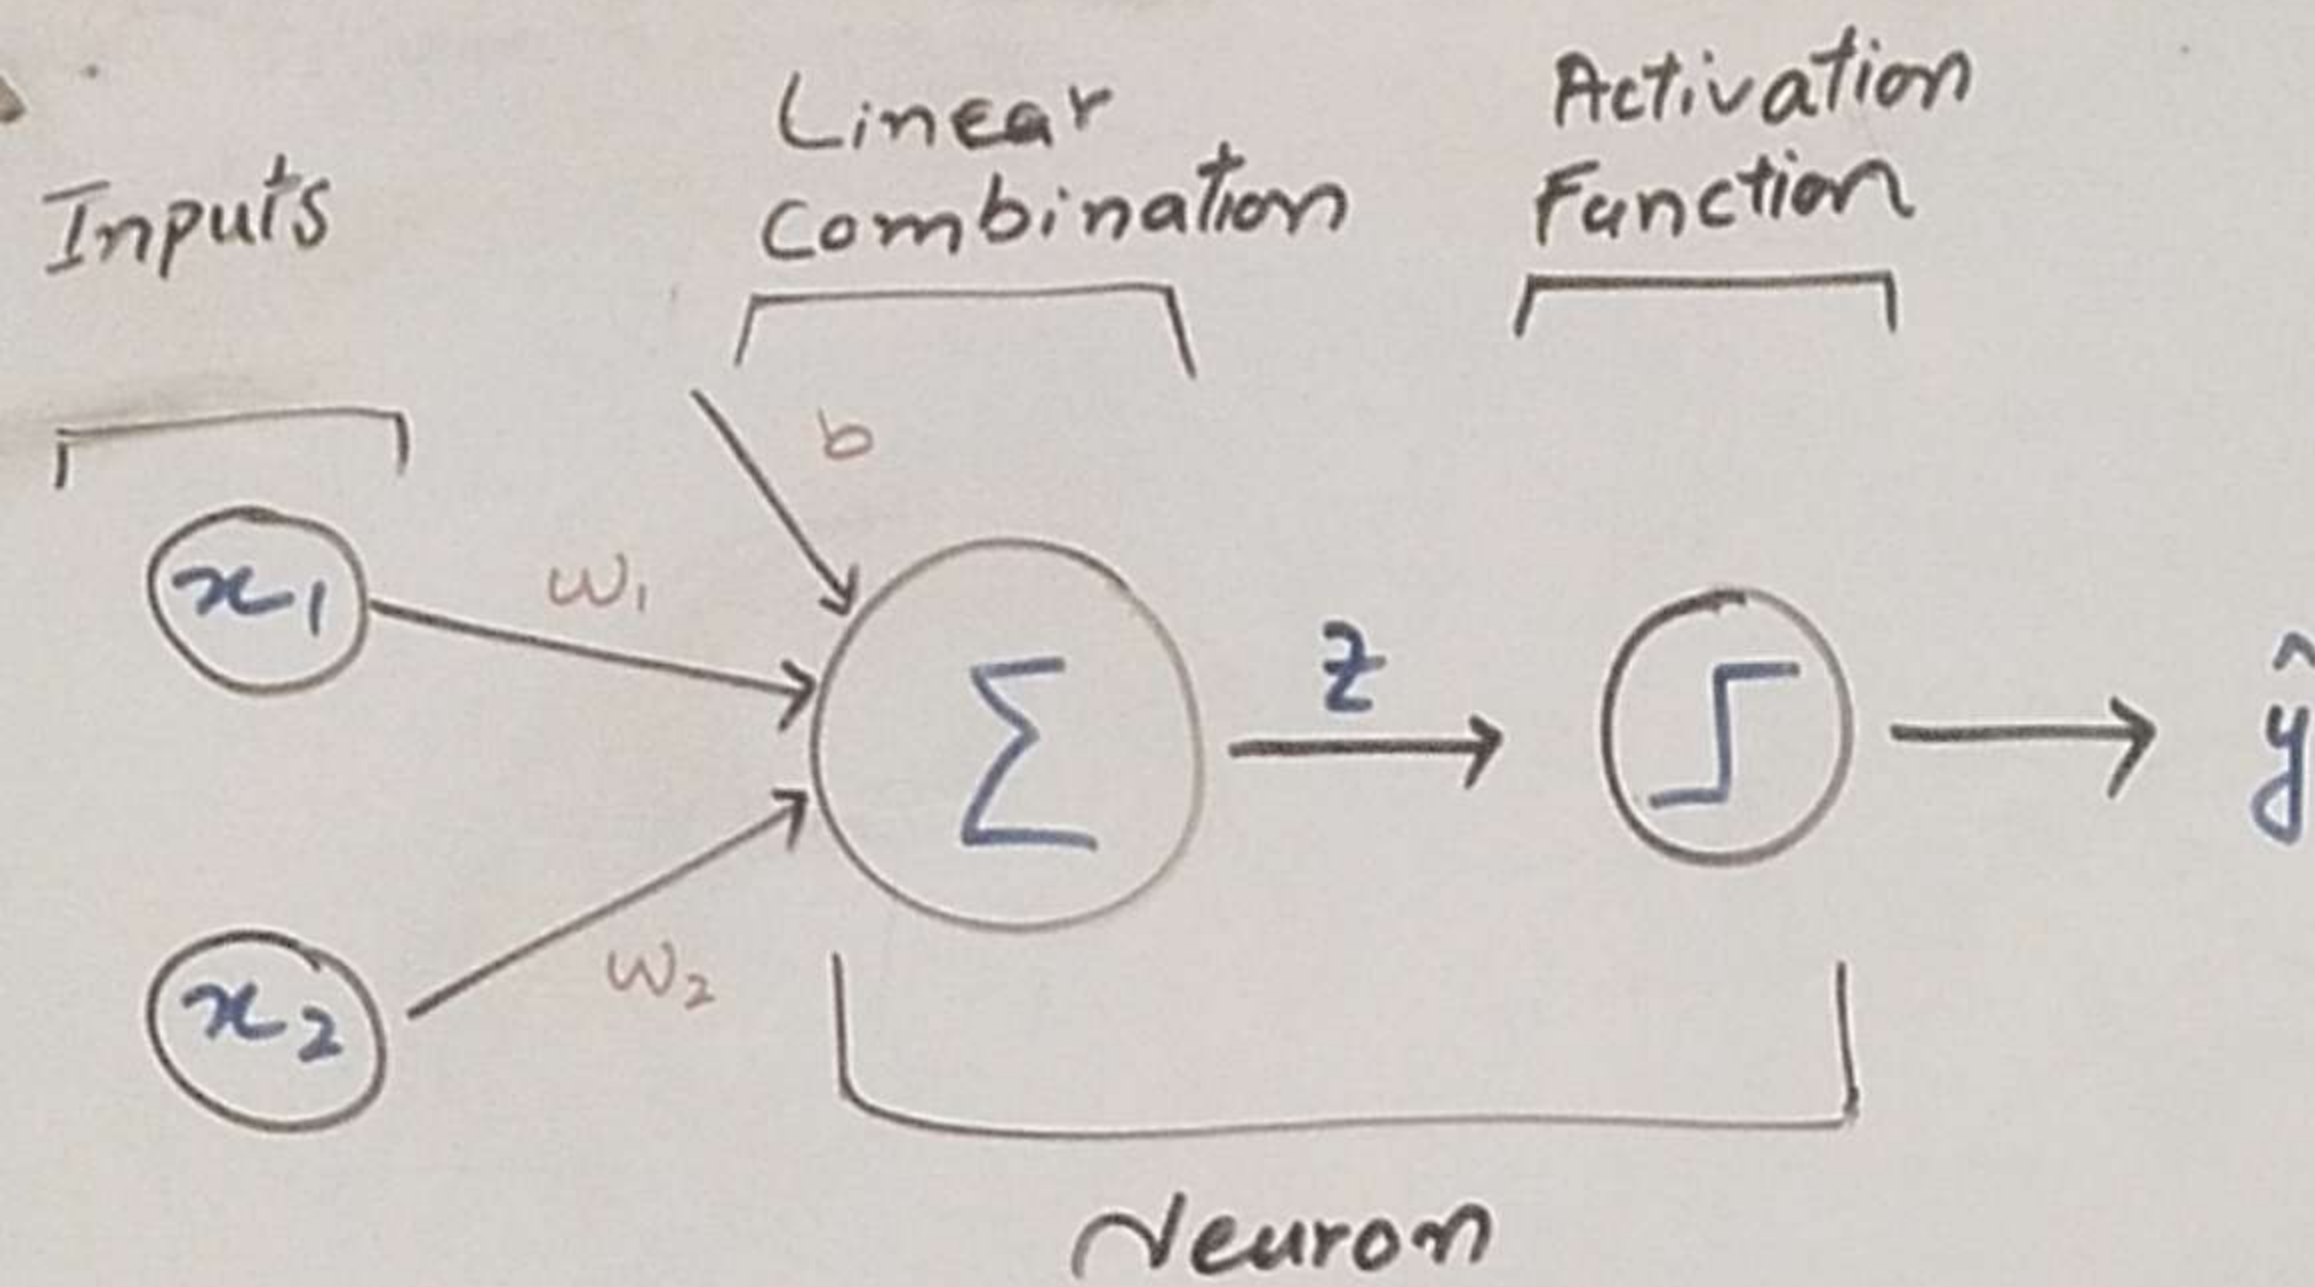 Inputs
Linear
Combination
Activation
Function
b
x₁
w₁
Σ
z
ŷ
x₂
w₂
Neuron